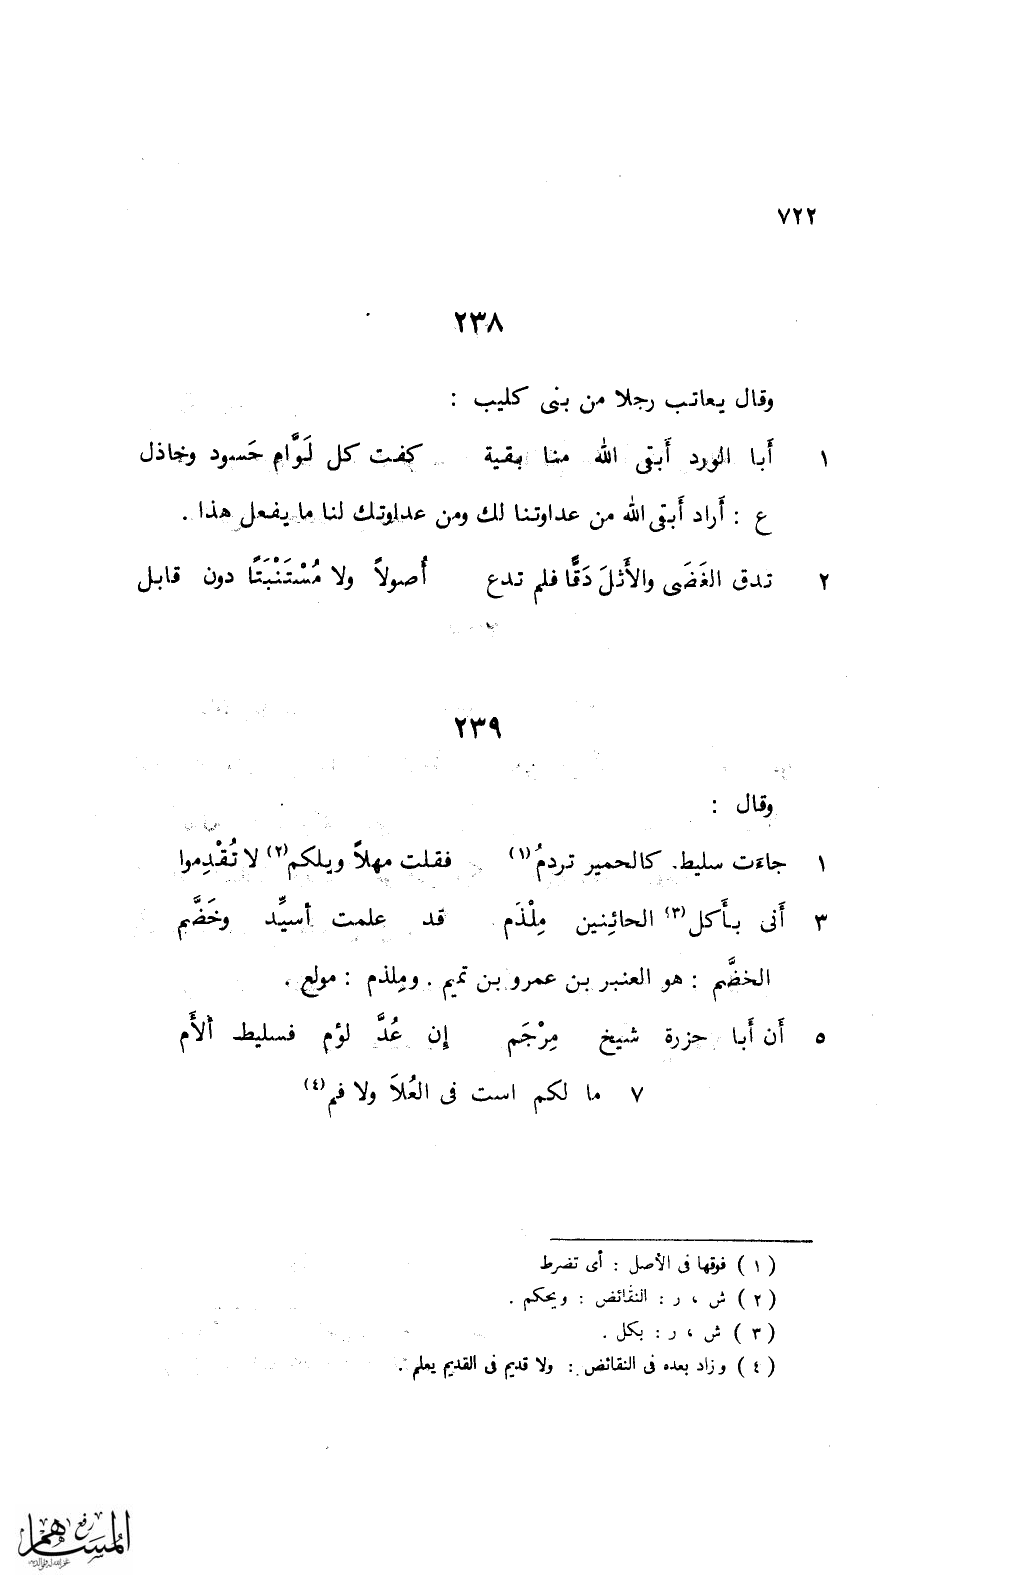 ٧٢٢
٢٣٨
وقال يعاتب رجلا من بنى كليب :
١ أَبا الورد أَبقى الله منا بقية كفت كل لَوَّامٍ حَسود وخاذل
ع : أَراد أَبقى الله من عداوتنا لك ومن عداوتك لنا ما يفعل هذا .
٢ تدق الغَضَى والأَثلَ دَقًّا فلم تدع أُصولاً ولا مُسْتَنْبَتًا دون قابل
٢٣٩
وقال :
١ جاءَت سليط كالحمير تردمُ(١) فقلت مهلاً ويلكم(٢) لا تُقْدِموا
٣ أَنى بأَكل(٣) الحائِنين مِلْذَم قد علمت أسيِّد وخَضَّم
الخضَّم : هو العنبر بن عمرو بن تميم . ومِلذم : مولع .
٥ أَن أَبا حزرة شيخ مِرْجَم إِن عُدَّ لؤم فسليط أَلأَم
٧ ما لكم است فى العُلاَ ولا فم(٤)
( ١ ) فوقها فى الأصل : أى تضرط
( ٢ ) ش ، ر : النقائض : ويحكم .
( ٣ ) ش ، ر : بكل .
( ٤ ) وزاد بعده فى النقائض : ولا قديم فى القديم يعلم .